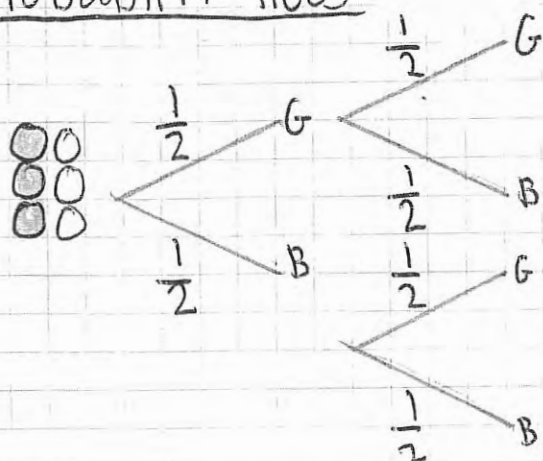 1/2 G
1/2 G
1/2 B
1/2 B
1/2 G
1/2 B